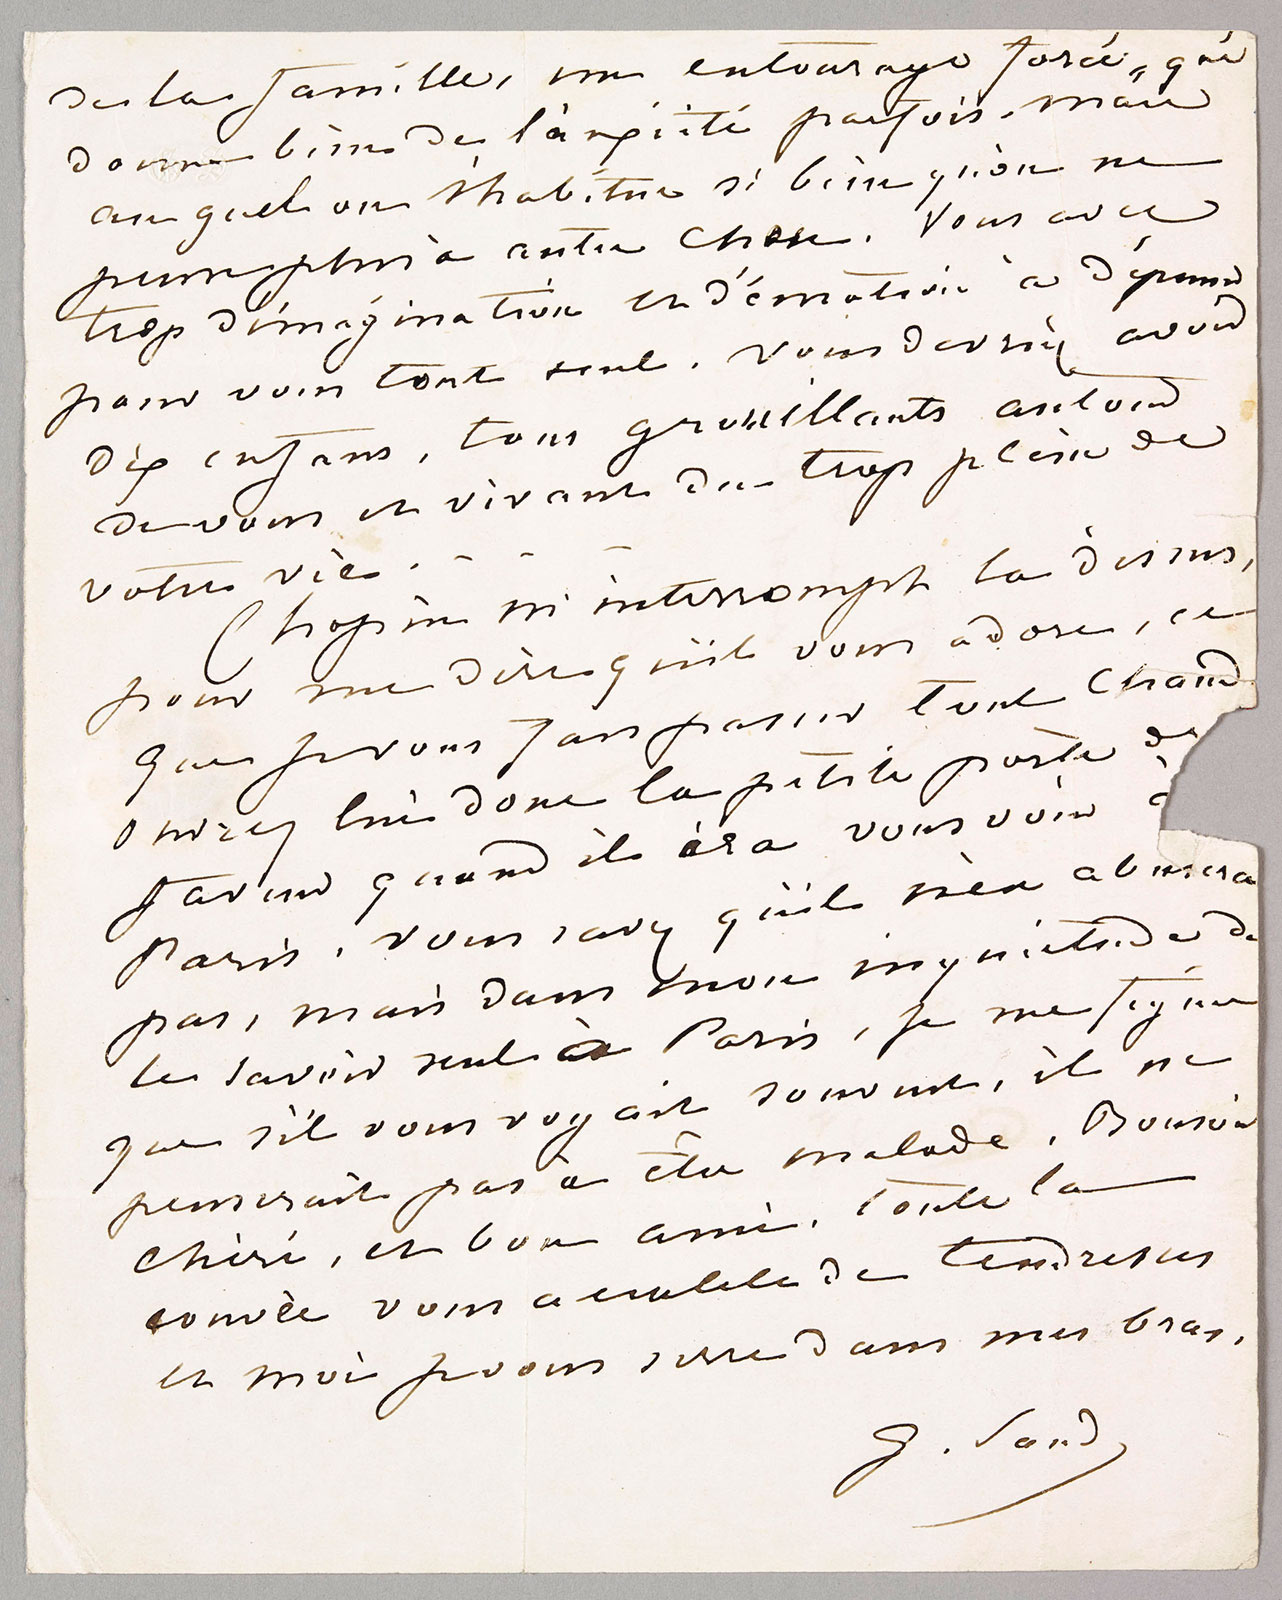 de la famille, un entourage forcé, qui
donne bien de l'anxiété parfois, mais
au quel on s'habitue si bien qu'on ne
pense plus à autre chose. Vous avez
trop d'imagination et d'émotion à dépenser
pour vous tout seul. Vous devriez avoir
dix enfans, tous grouillants autour
de vous et vivant du trop plein de
votre vie. - - -
Chopin m'interrompt là dessus,
pour me dire qu'il vous adore, ce
que je vous fais passer tout chaud
ouvrez lui donc la petite porte de
faveur quand il ira vous voir à
Paris. Vous savez qu'il n'en abusera
pas, mais dans mon inquiétude de
le savoir seul à Paris, je me figure
que s'il vous voyait souvent, il ne
penserait pas à être malade. Bonsoir
cheri, et bon ami, toute la
couvée vous accable de tendresses
et moi je vous serre dans mes bras.
G. Sand